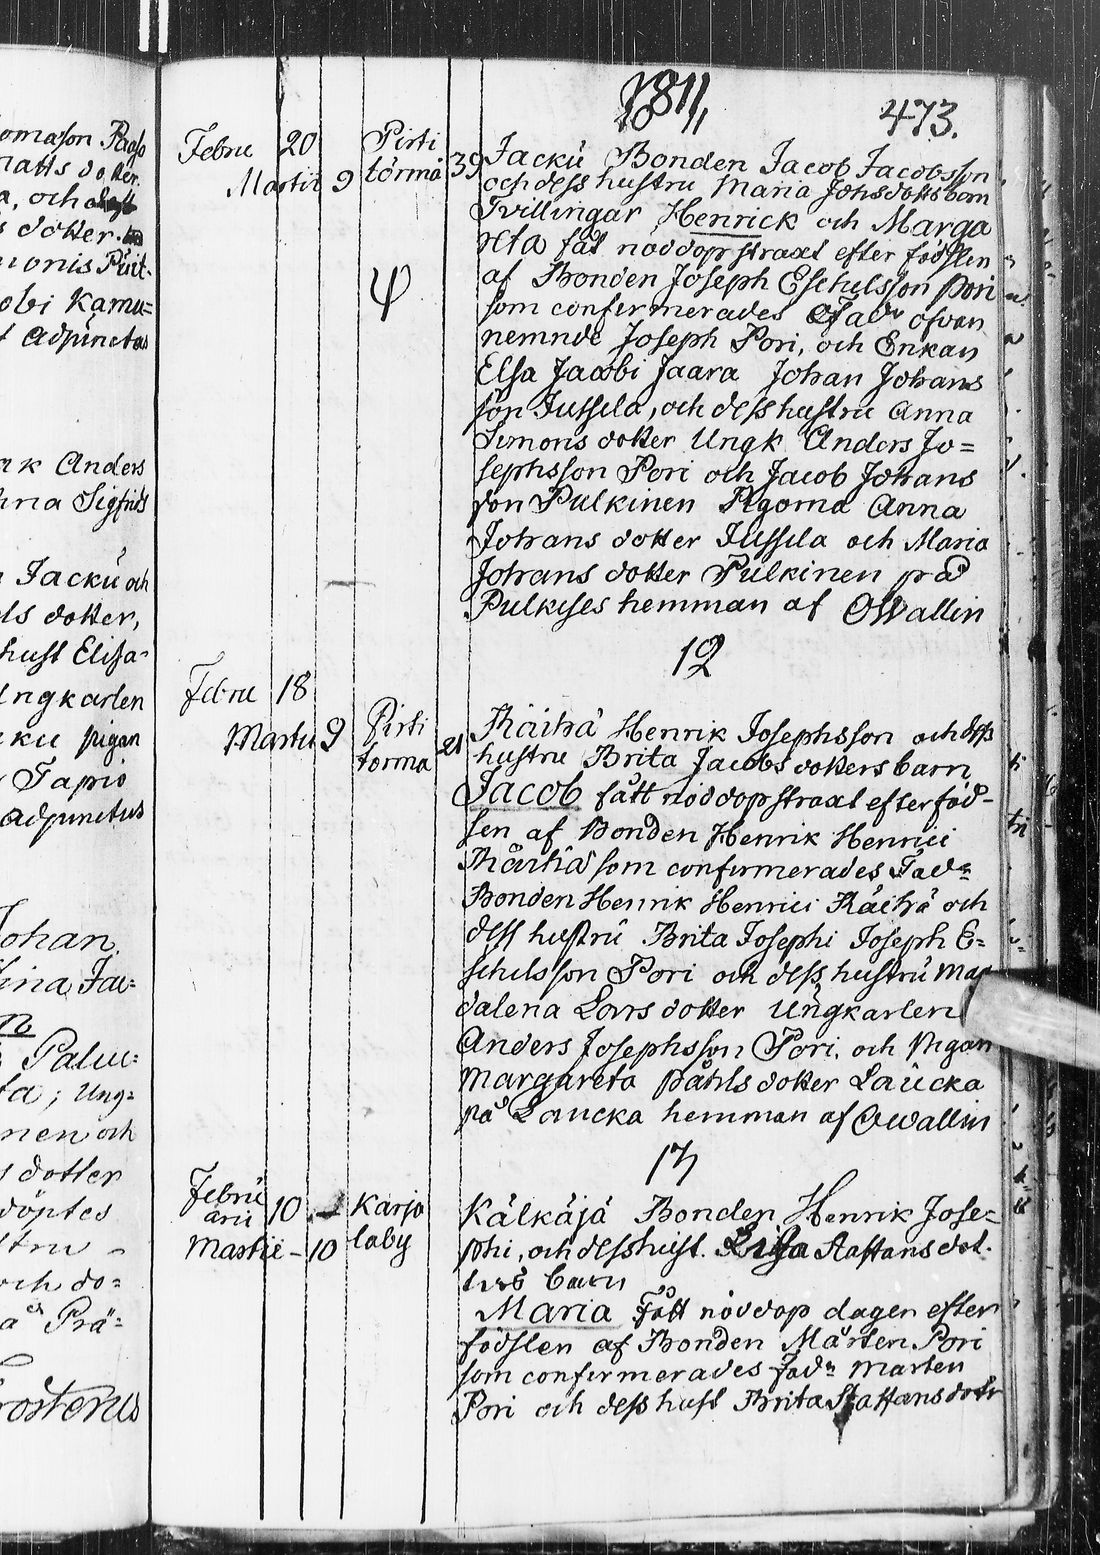 omason
matts doter
a, och
s dotter.
monis Püit-
obi Kamu=
t adjunctus
ak Anders
hna Sigfrids
n Jackü och
ls dotter,
hust Elisa-
Ungkarlen
cku pigan
Tapio
adjunctus
Johan
Stina Jac=
Palu=
ta; Ung=
nen och
s dotter
döptes
stru -
och do=
a Prä-
rosterus
1811,
473.
10
Febru 20 Pirti 39 Jackü Bonden Jacob Jacobsson
Martii 9 törmä och dess hustru Maria Johs dotters barn
Tvillingar Henrick och Marga
reta fåt nöddop straxt efter födslen
af Bonden Joseph Eschelsson Pori
som confirmerades Fadr ofvan
nemnde Joseph Pori, och Enkan
Elsa Jacobi Jaara Johan Johans
son Jussila, och dess hustru Anna
Simons dotter Ungk Anders Jo=
sephsson Pori och Jacob Johans
son Pulkinen Pigorna Anna
Johans dotter Jussila och Maria
Johans dotter Pulkinen på
Pulkises hemman af OWallin
12
Febru 18
Martii 9 Pirti 21 Räihä Henrik Josephsson och dess
torma hustru Brita Jacobs dotters barn
Jacob fått nöddop straxt efter föd-
sen af Bonden Henrik Henrici
Räihä som confirmerades Fadr
Bonden Henrik Henrici Räihä och
dess hustru Brita Josephi Joseph E=
schelsson Pori och dess hustru Mag
dalena Lars dotter Ungkarlen
Anders Josephsson Pori, och Pigan
Margareta Påhls dotter Laucka
på Laucka hemman af OWallin
13
Febru
arii 10 Karja Kälkäjä Bonden Henrik Jose=
Martii - 10 laby phi, och dess hust. Lisa Staffans dot.
ters barn
Maria Fått nöddop dagen efter
födslen af Bonden Mårten Pori
som confirmerades Fadr Marten
Pori och dess hust Brita Staffans dotr